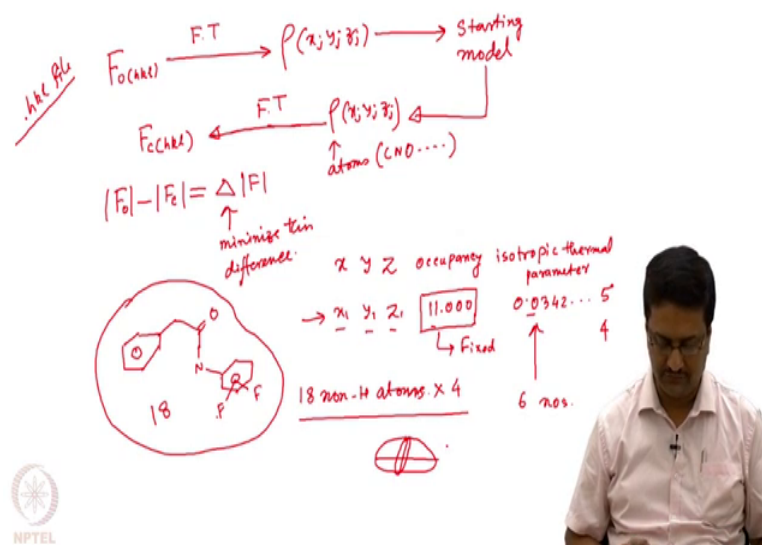 .hkl file
F.T
Fo(hkl) → ρ(xj yj zj) → Starting model
F.T
Fc(hkl) ← ρ(xj yj zj)
↑
atoms (CNO....)
|Fo|-|Fc| = Δ|F|
↑
minimize this
difference.
x y z occupancy isotropic thermal
parameter
→ x1 y1 z1 11.000 0.0342... 5
Fixed 4
O
N
F F
18
18 non-H atoms. x 4
6 nos.
NPTEL